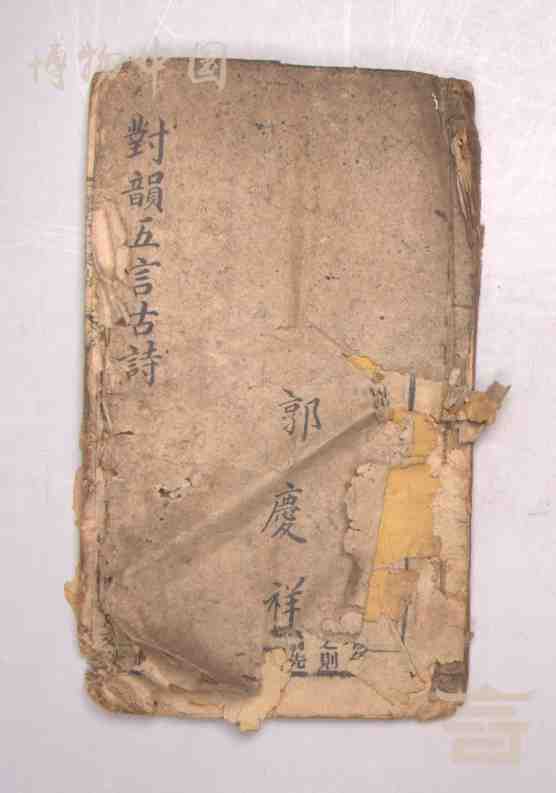 博物中国
對韻五言古詩
郭慶祥
則
先
言